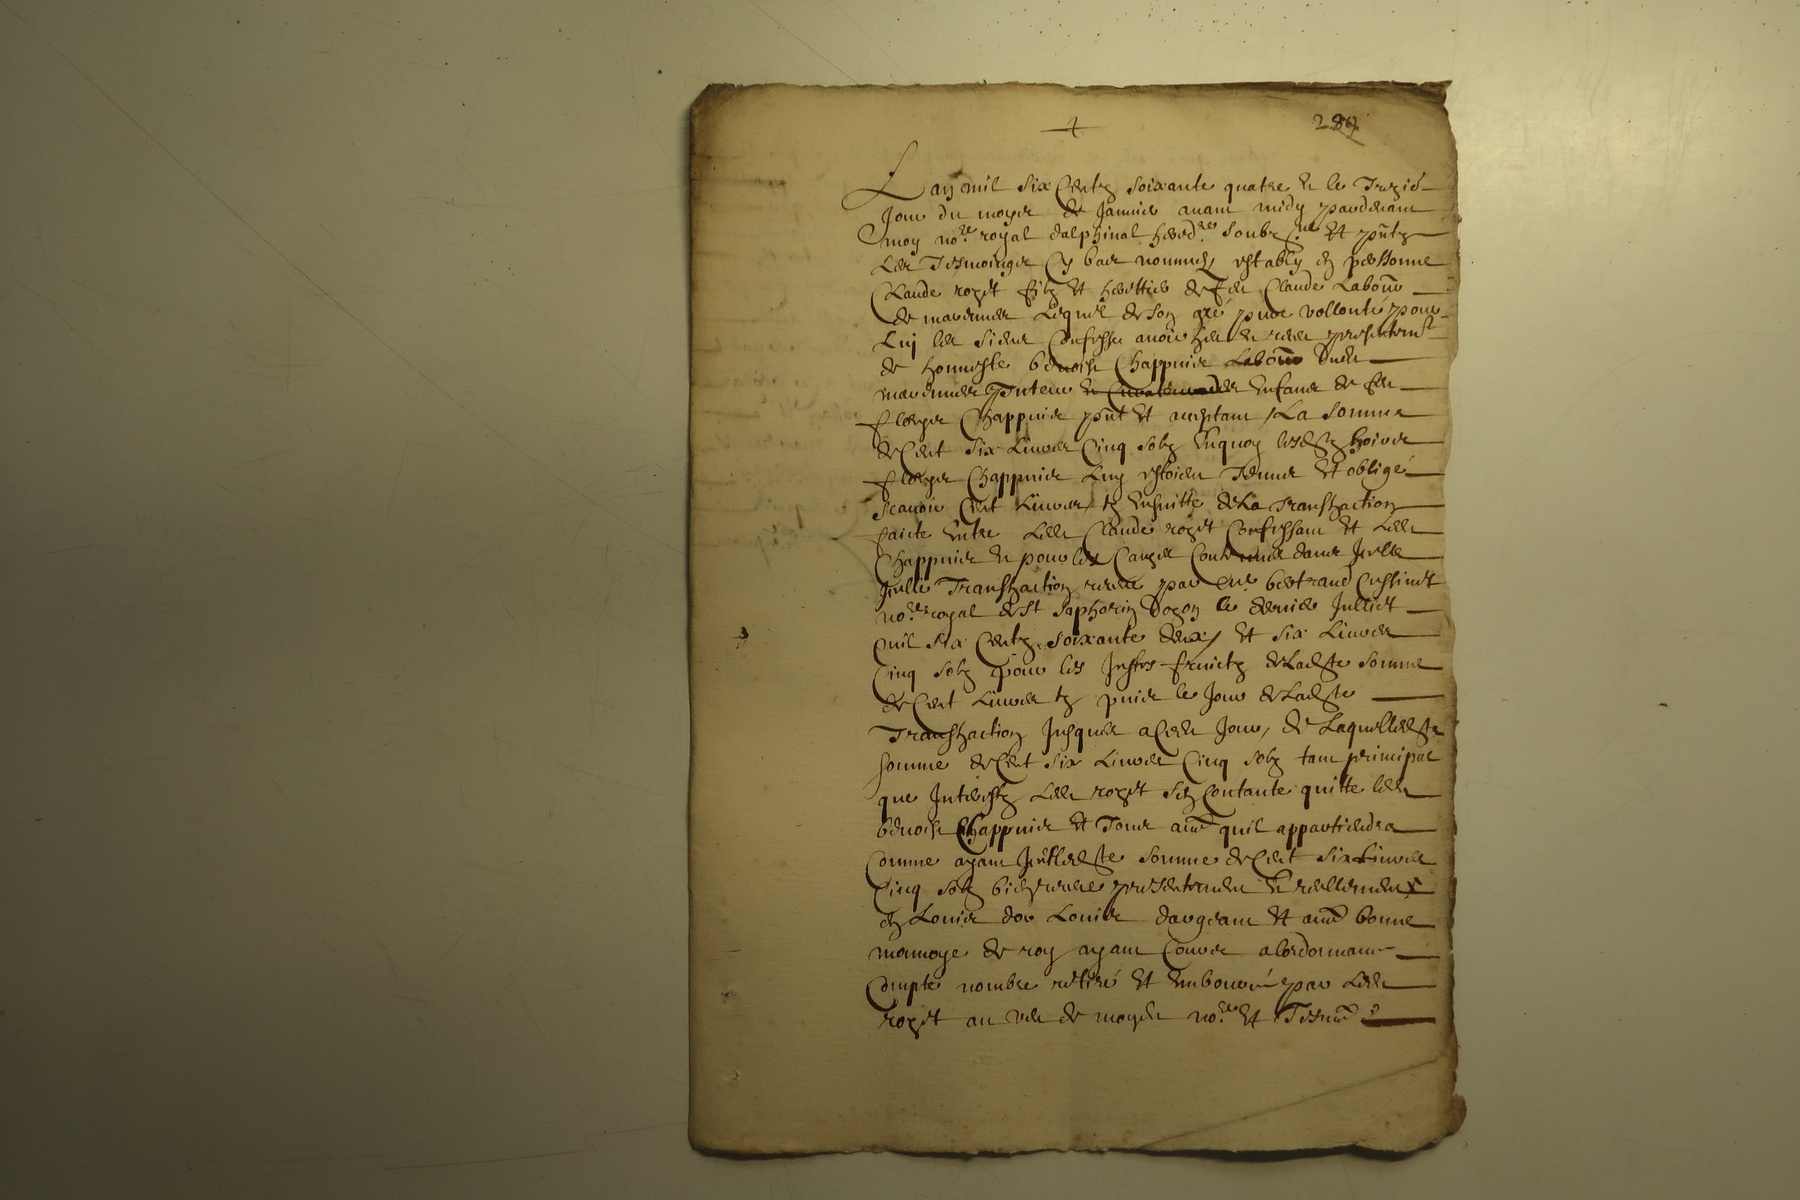 289
Lan mil six centz soixante quatre & le trezie
jour du moys de janvier avant midy pardevant
moy no.re royal dalphinal hered.re soubz.né et pntz
les tesmoings cy bas nommes, estably en personne
Claude roget filz et heritier de feu Claude labour
de marennes lequel de son gré pure vollonté pour
luy les siens confesse avoir heu & receu presentemt
de honneste benoist Chappuis dudit
marennes tuteur des enfans de feu
fleurys Chappuis pnt et acceptant, La somme
de cent six livres cinq solz enquoy lesdtz hoirs
fleurys Chappuis luy estoient tenus et obligé
scavoir cent livres tz ensuitte de la transhaction
faicte entre led Claude roget confessant et led
Chappuis & pour les causes contenues dans icelle
icelle transhaction receue par me bertrand
no.re royal de st saphorin dozon le dernier julliet
mil six centz soixante deux, et six livres
cinq solz pour les fruictz de ladte somme
de cent livres tz puis le jour de ladte
transhaction jusques a ced jour, de laquelle dte
somme de cent six livres cinq solz tant principal
que interestz led roget sen contante quitte led
benoist Chappuis et tous aues quil appartiendra
comme ayant icelle dte somme de cent six livres
cinq solz bien receue presentement & reellement
en Louis dor Louis dargeant et aues bonne
monnoye de roy ayant cours a lordonnance
compté nombré retiré et embourcé par led
roget au veu de moyd no.re et tesmo